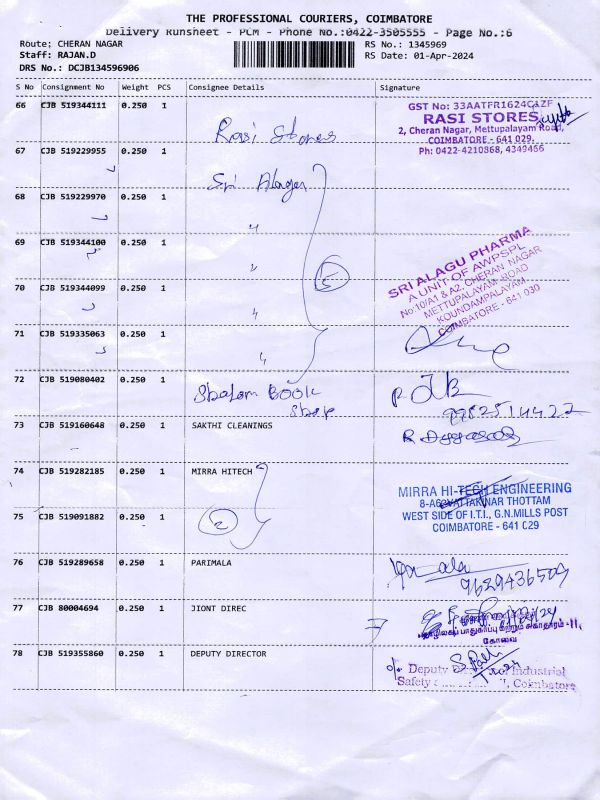 THE PROFESSIONAL COURIERS, COIMBATORE
Delivery Runsheet - PCM - Phone No.:0422-3505555 - Page No.:6
Route: CHERAN NAGAR
RS No.: 1345969
Staff: RAJAN.D
RS Date: 01-Apr-2024
DRS No.: DCJB134596906
S No Consignment No Weight PCS Consignee Details Signature
66 CJB 519344111 0.250 1 Rasi Stores
GST No: 33AATFR1624C1ZF
RASI STORES
2, Cheran Nagar, Mettupalayam Road,
COIMBATORE - 641 029.
Ph: 0422-4210868, 4349466
67 CJB 519229955 0.250 1 Sri Alagu
68 CJB 519229970 0.250 1 "
69 CJB 519344100 0.250 1 "
70 CJB 519344099 0.250 1 "
71 CJB 519335063 0.250 1 "
5
SRI ALAGU PHARMA
A UNIT OF AWPSPL
No:10/A1 & A2, CHERAN NAGAR
METTUPALAYAM ROAD
KOUNDAMPALAYAM,
COIMBATORE - 641 030
72 CJB 519080402 0.250 1 Shalom BOOK
Shop
73 CJB 519160648 0.250 1 SAKTHI CLEANINGS
74 CJB 519282185 0.250 1 MIRRA HITECH
75 CJB 519091882 0.250 1
2
MIRRA HI-TECH ENGINEERING
THOTTAM
WEST SIDE OF I.T.I., G.N.MILLS POST
COIMBATORE - 641 029
76 CJB 519289658 0.250 1 PARIMALA
9629436509
77 CJB 80004694 0.250 1 JIONT DIREC
பாதுகாப்பு மற்றும் சுகாதாரம் -II,
கோவை
78 CJB 519355860 0.250 1 DEPUTY DIRECTOR
o/o Deputy Industrial
Safety Coimbatore